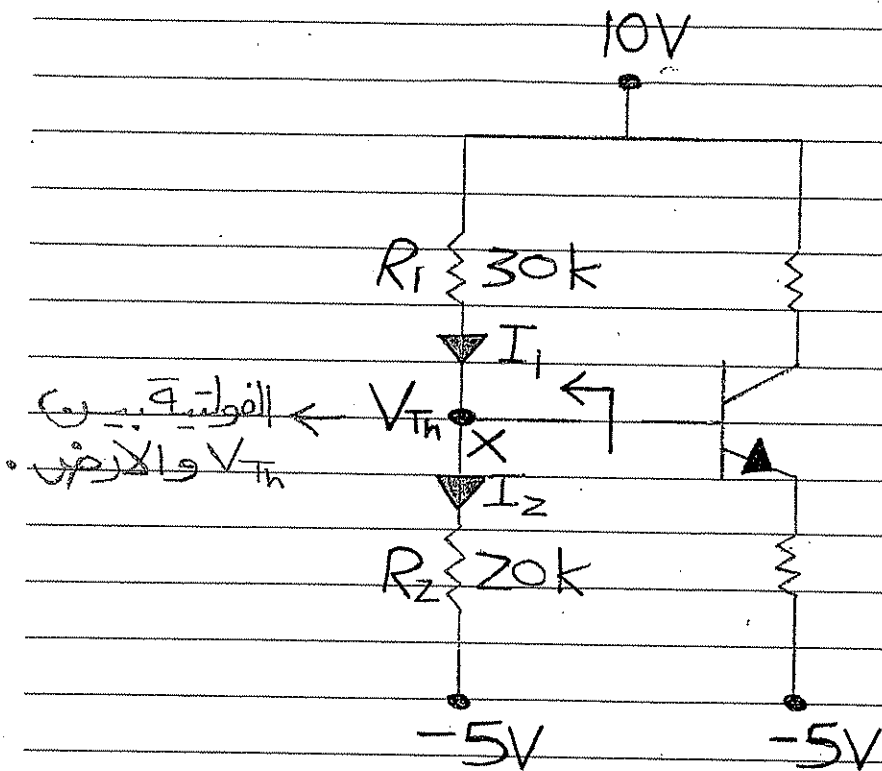 10V
R1 30k
I1
الفولتية بين VTh
VTh والأرض.
X
I2
R2 20k
-5V -5V